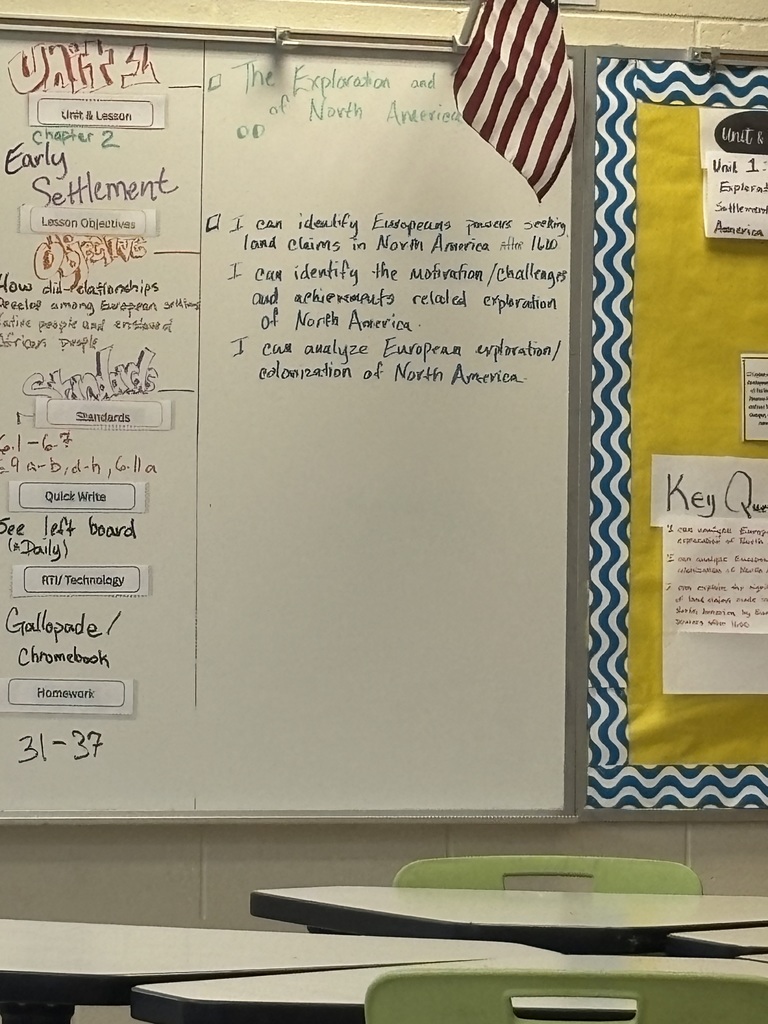 Unit 1
Unit & Lesson
Chapter 2
Early
Settlement
Lesson Objectives
Objective
How did relationships
Develop among European settlers
Native people and enslaved
African people
Standards
Standards
6.1-6.7
6.9 a-b, d-h, 6.11a
Quick Write
See left board
(*Daily)
RTI/ Technology
Gallopade/
Chromebook
Homework
31-37
The Exploration and
of North America
I can identify Europeans powers seeking
land claims in North America After 1600.
I can identify the motivation/challenges
and achievements related exploration
of North America.
I can analyze European exploration/
colonization of North America.
Unit &
Unit 1:
Explorat
Settlement
America
Key Qu
I can analyze Europ
exploration of North
I can analyze Europe
colonization of North A
I can explain the signi
of land claims made
North America by Eur
powers after 1600